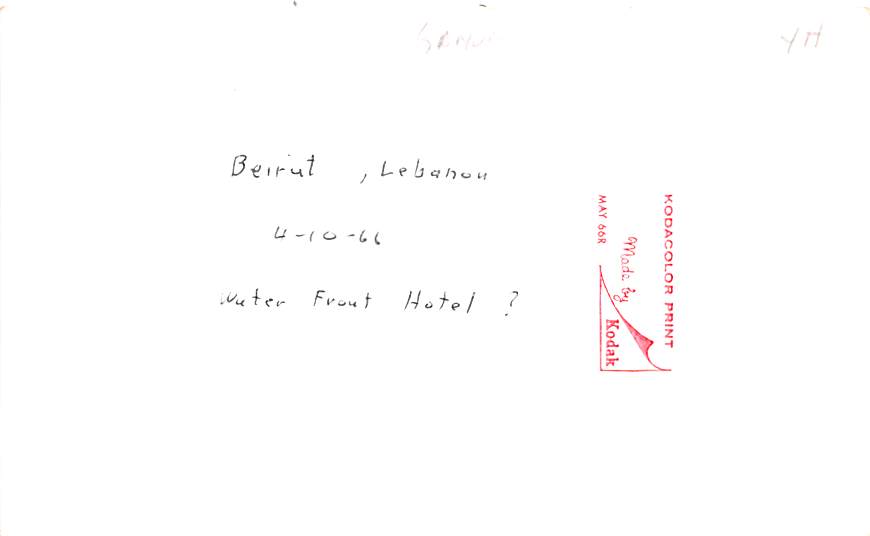 Beirut, Lebanon
4-10-66
Water Front Hotel ?
KODACOLOR PRINT
Made by
Kodak
MAY 66R
YH